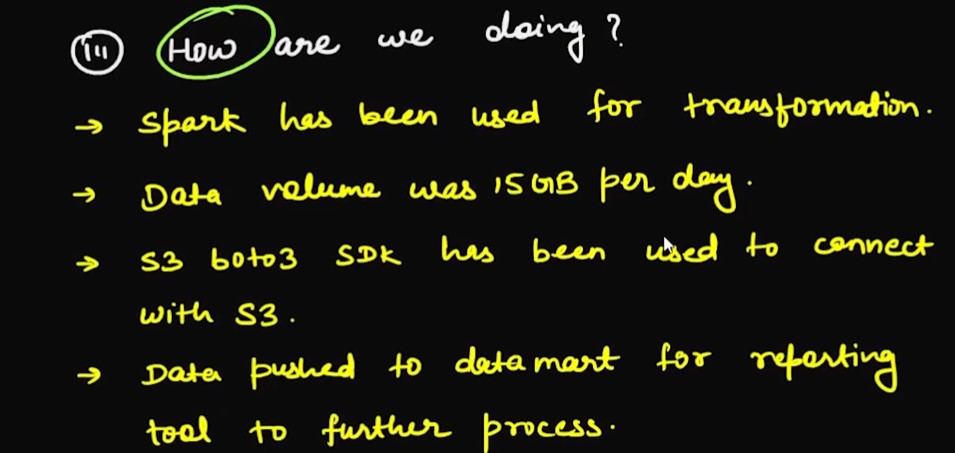 (iii) How are we doing?
→ Spark has been used for transformation.
→ Data volume was 15 GB per day.
→ S3 boto3 SDK has been used to connect
with S3.
→ Data pushed to data mart for reporting
tool to further process.